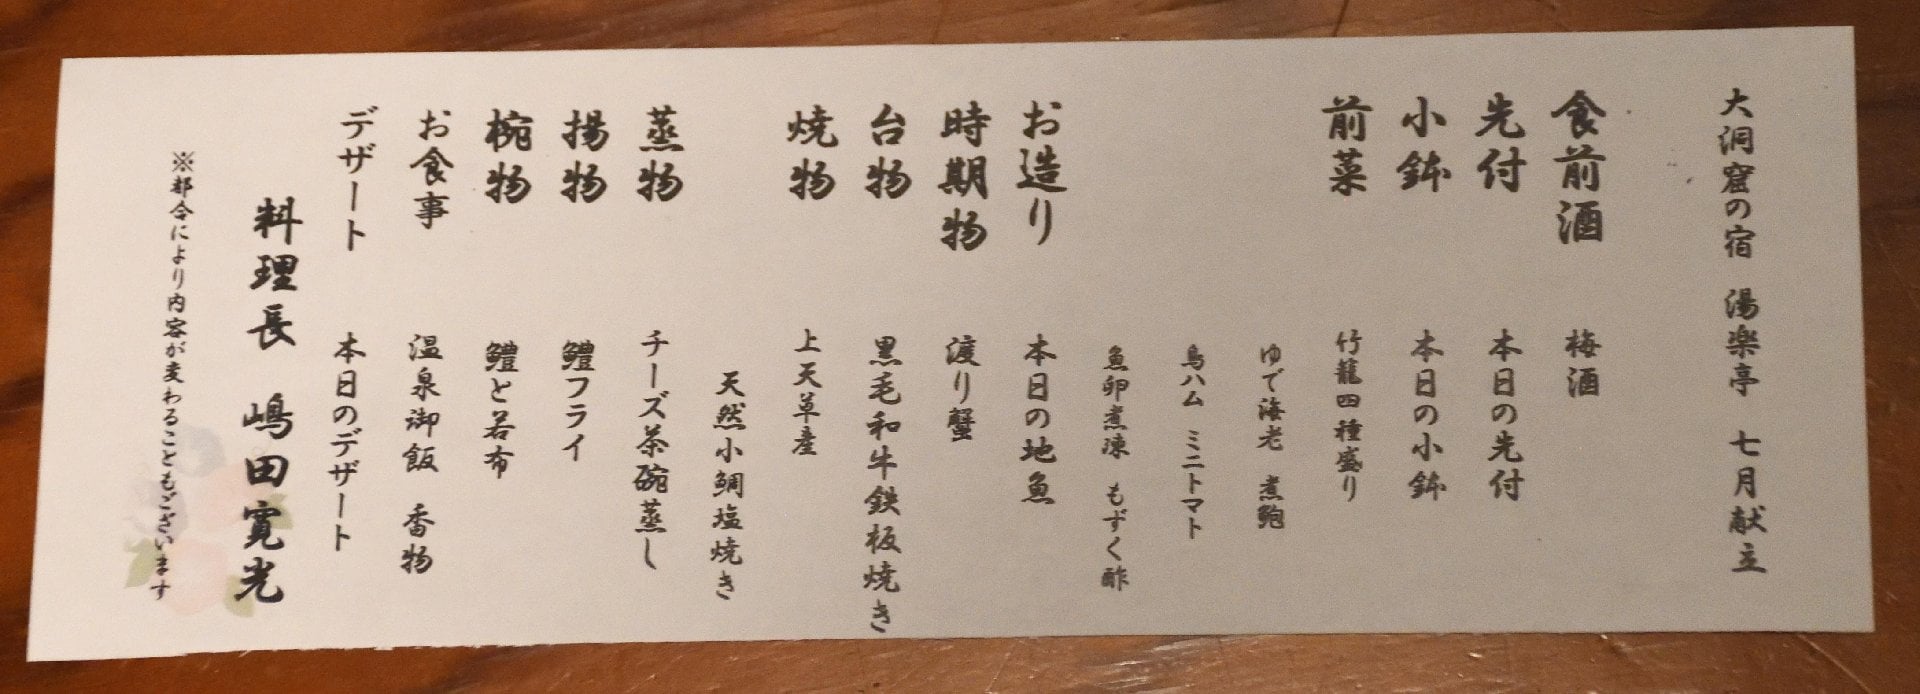 大洞窟の宿 湯楽亭 七月献立
食前酒 梅酒
先付 本日の先付
小鉢 本日の小鉢
前菜 竹籠四種盛り
ゆで海老 煮鮑
鳥ハム ミニトマト
魚卵煮凍 もずく酢
お造り 本日の地魚
時期物 渡り蟹
台物 黒毛和牛鉄板焼き
焼物 上天草産
天然小鯛塩焼き
蒸物 チーズ茶碗蒸し
揚物 鱧フライ
椀物 鱧と若布
お食事 温泉御飯 香物
デザート 本日のデザート
料理長 嶋田寛光
※都合により内容が変わることもございます